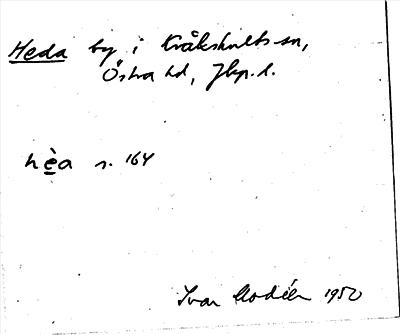 Heda by i Kråkshults sn,
Östra hd, Jkp. l.
hèa s. 164
Ivar Modéer 1950